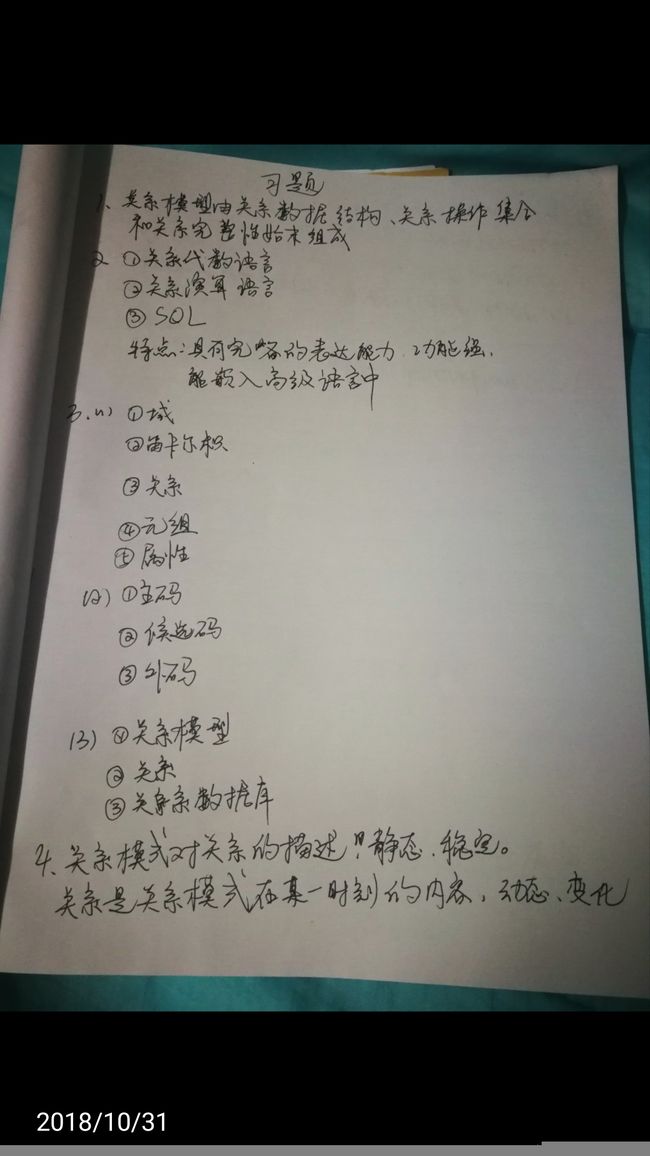 习题
1、关系模型由关系数据结构、关系操作集合
和关系完整性始束组成
2 ①关系代数语言
②关系演算语言
③SQL
特点:具有完备的表达能力、功能强、
能嵌入高级语言中
3.(1) ①域
②笛卡尔积
③关系
④元组
⑤属性
(2) ①主码
②候选码
③外码
(3) ①关系模型
②关系
③关系系数据库
4、关系模式对关系的描述,静态、稳定。
关系是关系模式在某一时刻的内容,动态、变化
2018/10/31